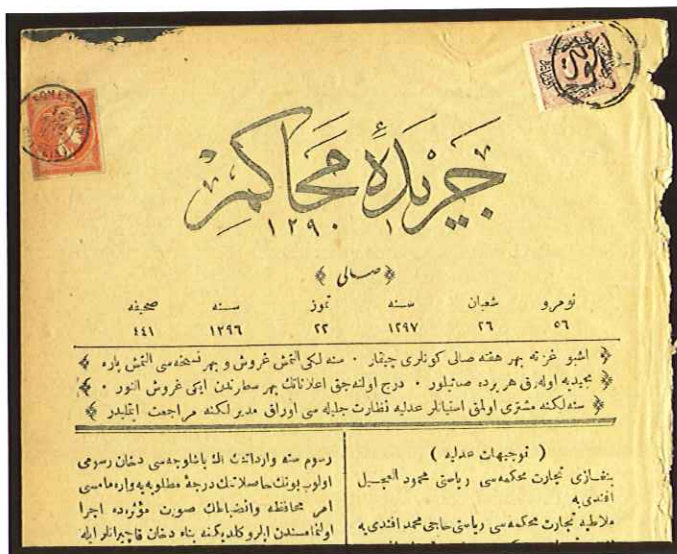 جريدهٔ محاكم
١٢٩٠
﴿ صالى ﴾
نومرو شعبان سنه تموز سنه صحيفه
٥٦ ٢٦ ١٢٩٧ ٢٢ ١٢٩٦ ٤٤١
اشبو غزته بهر هفته صالى كونلرى چيقار ٠ سنه لكى التمش غروش و بهر نسخه سى التمش پاره
مجيديه اوله رق هر يرده صاتيلور ٠ درج اولنه جق اعلاناتك بهر سطرندن ايكى غروش النور ٠
سنه لكنه مشترى اولمق استيانلر عدليه نظارت جليله سى اوراق مدير لكنه مراجعت ايتمليدر
( توجيهات عدليه )
بنغازى تجارت محكمه سى رياستى محمود العجيل
افندى يه
ملاطيه تجارت محكمه سى رياستى حاجى محمد افندى يه
رسوم سنه وارداتنك الك باشلوجه سى دخان رسومى
اولوب بونك حاصلاتنك درجهٔ مطلوبه يه وارمامسى
امر محافظه وانضباطك صورت مؤثره ده اجرا
اولنمامسندن ايلرو كلديكنه بناء دخان قاچيرانلر ايله